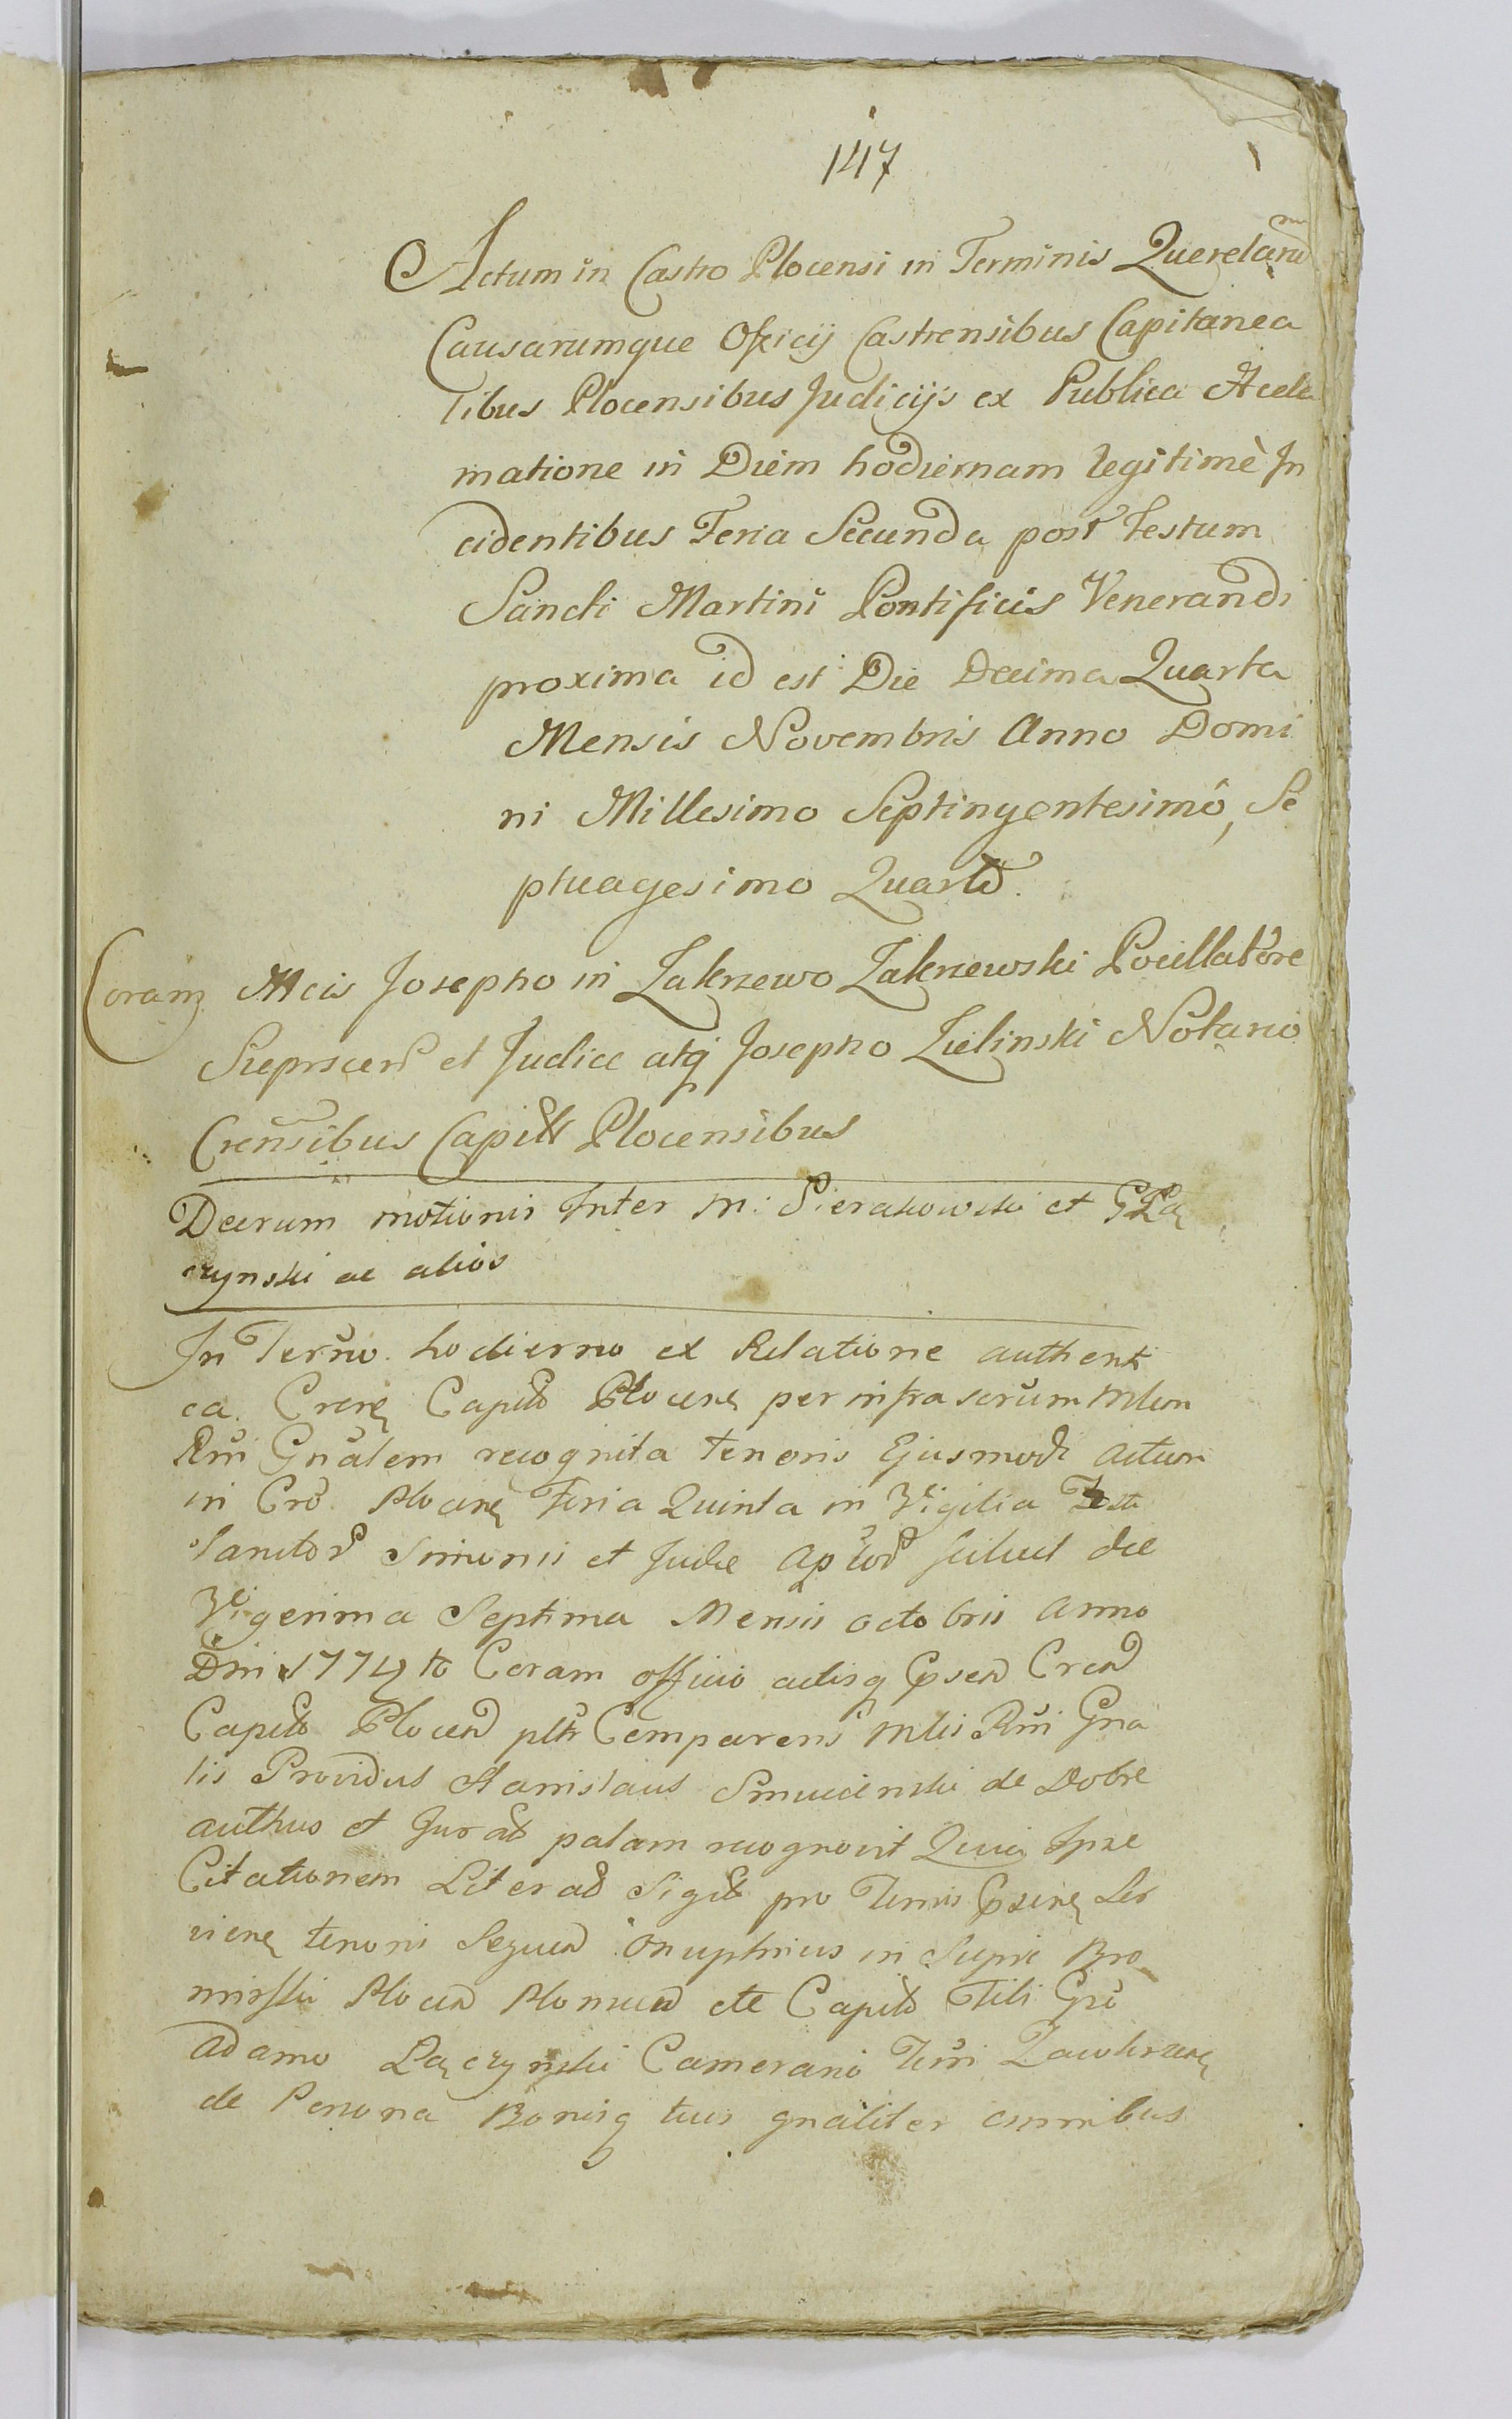 147
Actum in Castro Plocensi in Terminis Querelarum
Causarumque Officij Castrensibus Capitanea
libus Plocensibus Judicijs ex Publica Accla
matione in Diem hodiernam legitimè In
cidentibus Feria Secunda post Festum
Sancti Martini Pontificis Venerandi
proxima id est Die Decima Quarta
Mensis Novembris Anno Domi
ni Millesimo Septingentesimô, Se
ptuagesimo Quarto.
Coram Mcis Josepho in Zakrzewo Zakrzewski Pocillatore
et Judice atq Josepho Zielinski Notario
Crensibus Capitt Plocensibus
Decrum motionis Inter M: Sierakowski et G Łą
czynski ac alios
In Termo hodierno ex Relatione authenti
ca Crenę Capitt Plocenę per infra scrum Mlem
Rni Gnalem recognita tenoris Ejusmodi Actum
in Cro Plocenę Feria Quinta in Vigilia Festi
Sanctor Simonis et Judæ Aplor scilicet die
Vigesima Septima Mensis octobris Anno
Dni 1774to Coram officio actisq Cren
Capitt Plocen Comparens Mlis Rni Gna
lis Providus Stanislaus de Dobre
authus et Jurat palam recognovit Quia Ipse
Citationem Literat Sigitt pro Termis Ser
vienę tenoris Sequen Onuphrius in Bro
Plocen etc Capitt Tibi Gso
Adamo Łączynski Camerario Terri Zawkrzenę
de Persona Bonisq tuis gnaliter omnibus